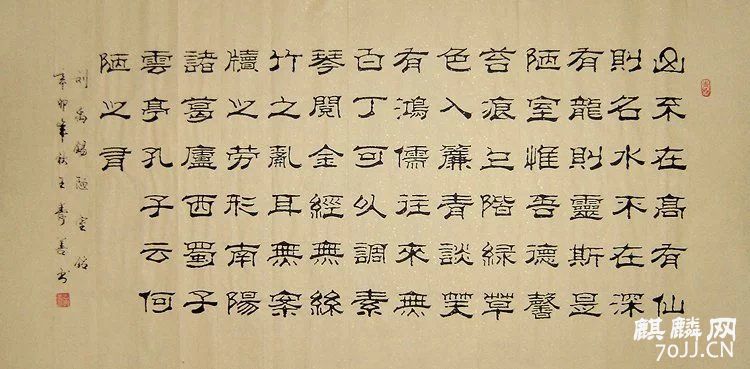 山不在高有仙
則名水不在深
有龍則靈斯是
陋室惟吾德馨
苔痕上階緑草
色入簾青談笑
有鴻儒往來無
白丁可以調素
琴閱金經無絲
竹之亂耳無案
牘之勞形南陽
諸葛廬西蜀子
雲亭孔子云何
陋之有
刘禹錫陋室銘
辛卯年秋王寿善书
麒麟网
70JJ.CN